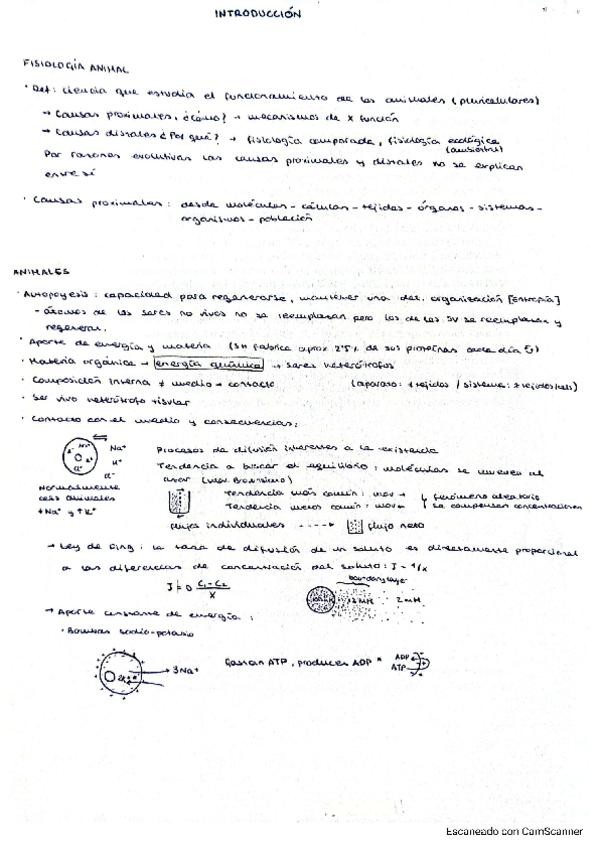 INTRODUCCIÓN
FISIOLOGÍA ANIMAL
· Def: ciencia que estudia el funcionamiento de los animales (pluricelulares)
→ Causas proximales, ¿cómo? → mecanismos de x función
→ Causas distales ¿Por qué? → fisiología comparada, fisiología ecológica
(ambiental)
Por razones evolutivas las causas proximales y distales no se explican
entre sí
· Causas proximales: desde moléculas - células - tejidos - órganos - sistemas -
organismos - población
ANIMALES
· Autopoyesis: capacidad para regenerarse, mantener una det. organización [Entropía]
- átomos de los seres no vivos no se reemplazan pero los de los SV se reemplazan y
regeneran.
· Aporte de energía y materia (SH fabrica aprox 25% de sus proteínas cada día)
· Materia orgánica → energía química → seres heterótrofos
· Composición interna ≠ medio → contacto (aparato: ≠ tejidos / sistema: = tejidos)
· Ser vivo heterótrofo tisular
· Contacto con el medio y consecuencias:
Na+
K+
Cl-
Normalmente
cels animales
↓Na+ y ↑K+
Procesos de difusión inherentes a la existencia
Tendencia a buscar el equilibrio: moléculas se mueven al
azar (mov. Browniano)
Tendencia más común: mov →
Tendencia menos común: mov ←
fenómeno aleatorio
se compensan concentraciones
flujos individuales ----→ flujo neto
→ Ley de Fing: la tasa de difusión de un soluto es directamente proporcional
a las diferencias de concentración del soluto: J - 1/x
J = D C1 - C2 / X
boundary layer
2 mM
→ Aporte constante de energía:
· Bombas sodio-potasio
→ 3Na+
2K+
Gastan ATP, producen ADP
ADP
ATP
Escaneado con CamScanner